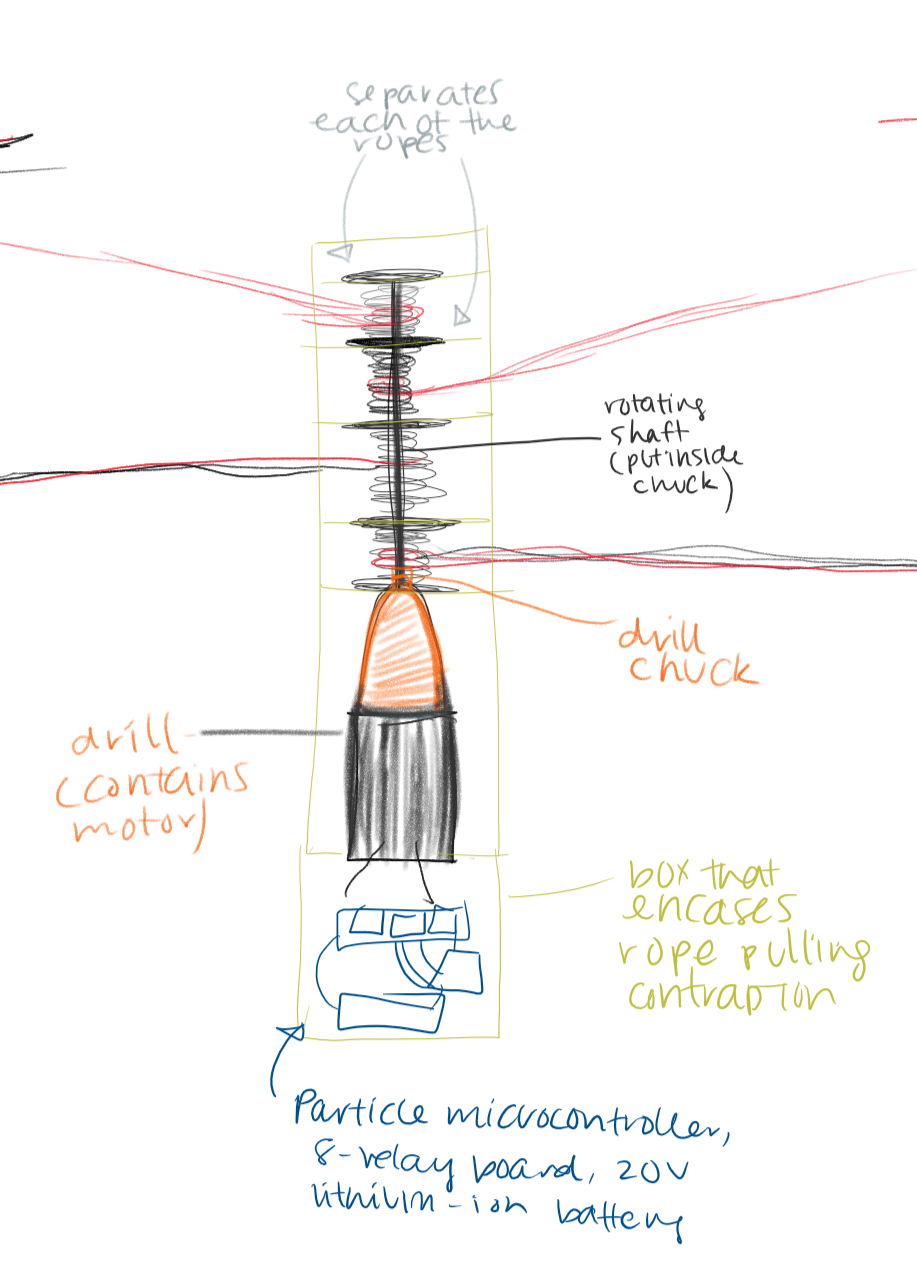 separates
each of the
ropes
rotating
shaft
(put inside
chuck)
drill
chuck
drill
(contains
motor)
box that
encases
rope pulling
contraption
Particle microcontroller,
8-relay board, 20V
lithium-ion battery